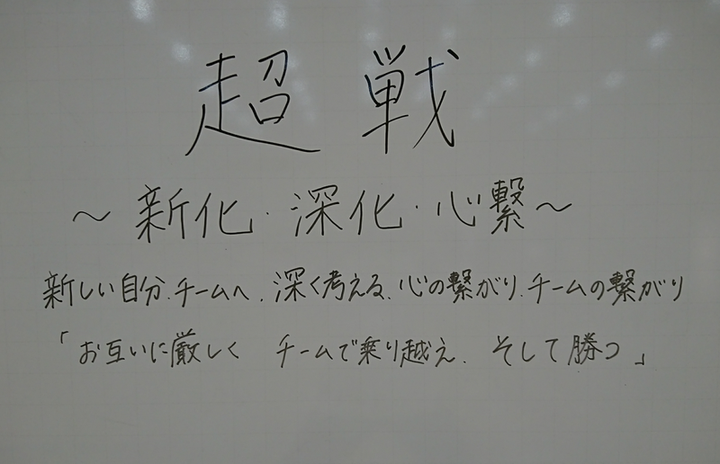 超戦
～新化・深化・心繋～
新しい自分.チームへ.深く考える.心の繋がり.チームの繋がり
「お互いに厳しく チームで乗り越え. そして勝つ」